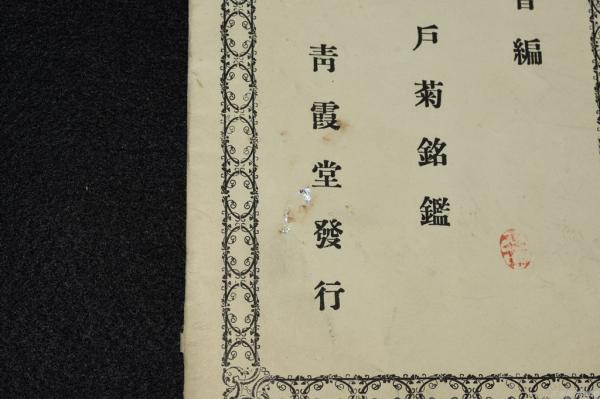 編
戶菊銘鑑
靑霞堂發行